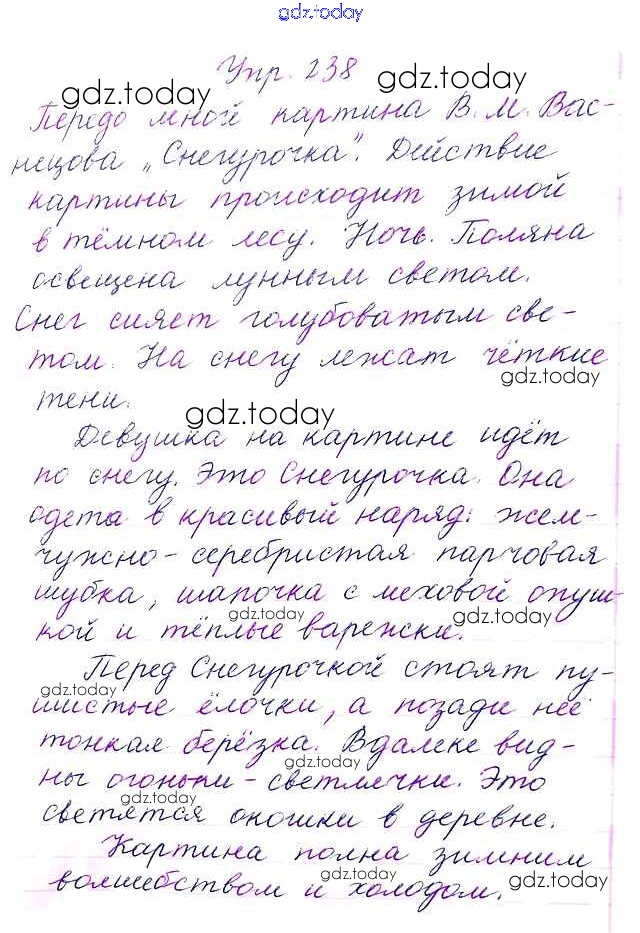 gdz.today
Упр. 238
gdz.today
gdz.today
Передо мной картина В. М. Вас-
нецова „Снегурочка". Действие
картины происходит зимой
в тёмном лесу. Ночь. Поляна
освещена лунным светом.
Снег сияет голубоватым све-
том. На снегу лежат чёткие
gdz.today
тени.
gdz.today
Девушка на картине идёт
по снегу. Это Снегурочка. Она
одета в красивый наряд: жем-
чужно-серебристая парчовая
шубка, шапочка с меховой опуш-
gdz.today
gdz.today
кой и тёплые варежски.
Перед Снегурочкой стоят пу-
gdz.today
шистые ёлочки, а позади неё
тонкая берёзка. Вдалеке вид-
gdz.today
ны огоньки - светлячки. Это
gdz.today
светятся окошки в деревне.
Картина полна зимним
gdz.today
gdz.today
волшебством и холодом.